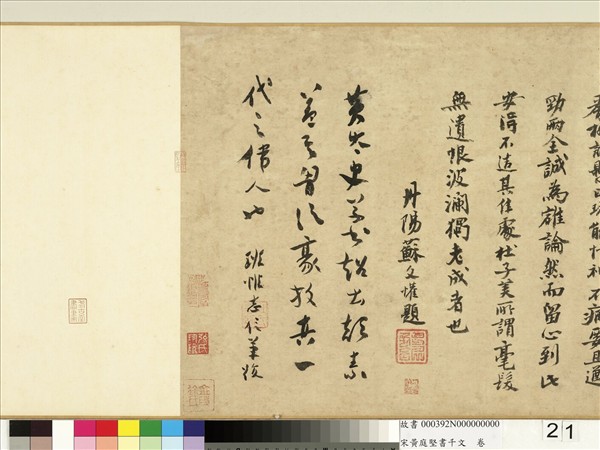 勁兩全誠為雄論然而留心到此
安得不造其佳處杜子美所謂毫髮
無遺恨波瀾獨老成者也
丹陽蘇文題
黃太史草書超出顛素
蓋其胸次豪放真一
代之偉人也 班惟志信筆跋
故書 000392N000000000
宋黃庭堅書千文 卷
21